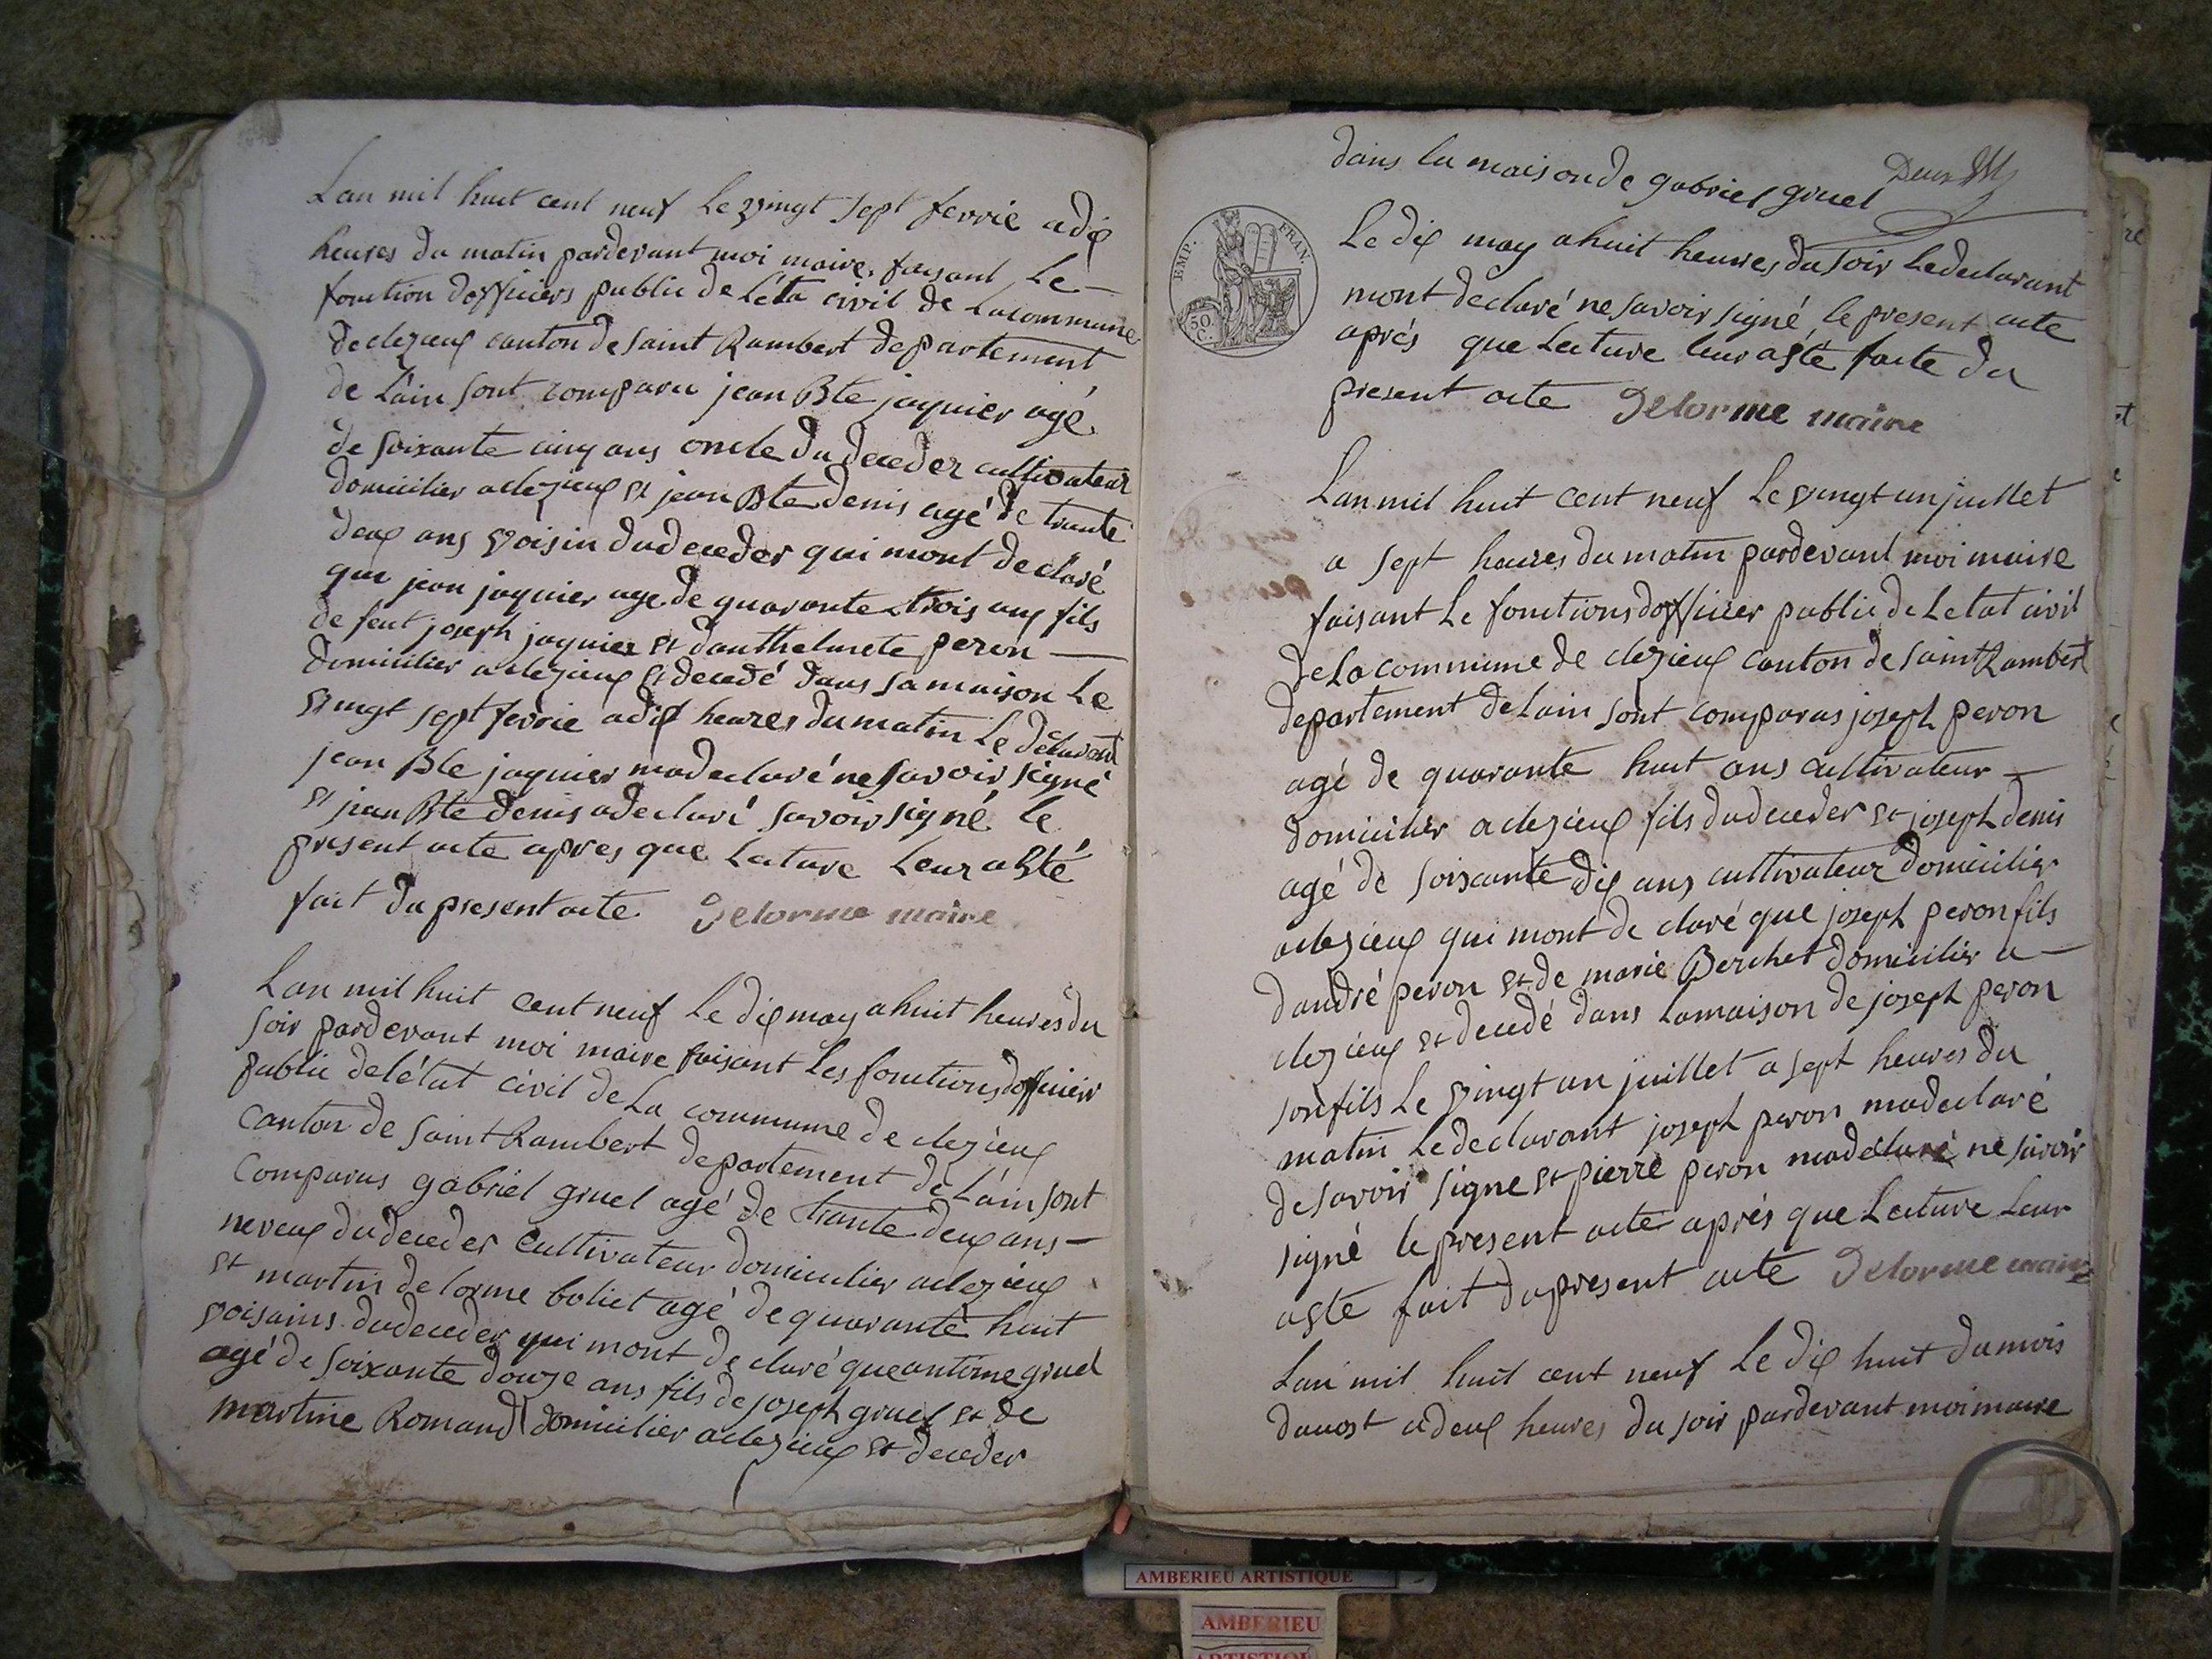 Lan mil huit cent neuf Le vingt sept ferrie adix
heures du matin pardevant moi maire, faisant Le
fonction dofficiers public de Léta civil de Lacommune
de clezieux canton de saint Rambert departement
de Lain sont comparu jean Bte jaquier agé
de soixante cinq ans oncle du deceder cultivateur
domicilier a clezieux et jean Bte denis agé de trante
deux ans voisin du deceder qui mont declaré
que jean jaquier age de quarante trois ans fils
de feut joseph jaquier et danthelmete peron
domicilier a clezieux et decedé dans sa maison Le
vingt sept ferrie adix heures du matin Le declarant
jean Bte jaquier ma declaré ne savoir signé
et jean Bte denis a declaré savoir signé le
present acte apres que Lecture Leur a Sté
fait du present acte Delorme maire
Lan mil huit cent neuf Le dix may a huit heures du
soir pardevant moi maire faisant Les fonctions dofficier
public de létat civil de La commune de clezieux
canton de saint Rambert departement de Lain sont
comparus gabriel gruel agé de trante deux ans
neveux du deceder cultivateur domicilier a clezieux
et martin delorme boliet agé de quarante huit
voisains du deceder qui mont declaré que antoine gruel
agé de soixante douze ans fils de joseph gruel et de
martine Romand domicilier a clezieux et deceder
dans la maison de gabriel gruel
Deux
EMP. FRAN.
50 C.
Le dix may a huit heures du soir Le declarant
mont declaré ne savoir signé le present acte
aprés que Lecture leur a sté faite du
present acte Delorme maire
Lan mil huit cent neuf Le vingt un juillet
a sept heures du matin pardevant moi maire
faisant Le fonctions dofficier public de Letat civil
de La commune de clezieux canton de saint Rambert
departement de Lain sont comparus joseph peron
agé de quarante huit ans cultivateur
domicilier a clezieux fils du deceder et joseph denis
agé de soixante dix ans cultivateur domicilier
a clezieux qui mont declaré que joseph peron fils
dandré peron et de marie Berchet domicilier a
clezieux et decedé dans La maison de joseph peron
son fils Le vingt un juillet a sept heures du
matin Le declarant joseph peron ma declaré
de savoir signe et pierre peron ma declaré ne savoir
signé le present acte aprés que Lecture Leur
a sté fait du present acte Delorme maire
Lan mil huit cent neuf Le dix huit du mois
davost a deux heures du soir pardevant moi maire
AMBERIEU ARTISTIQUE
AMBERIEU
ARTISTIQUE